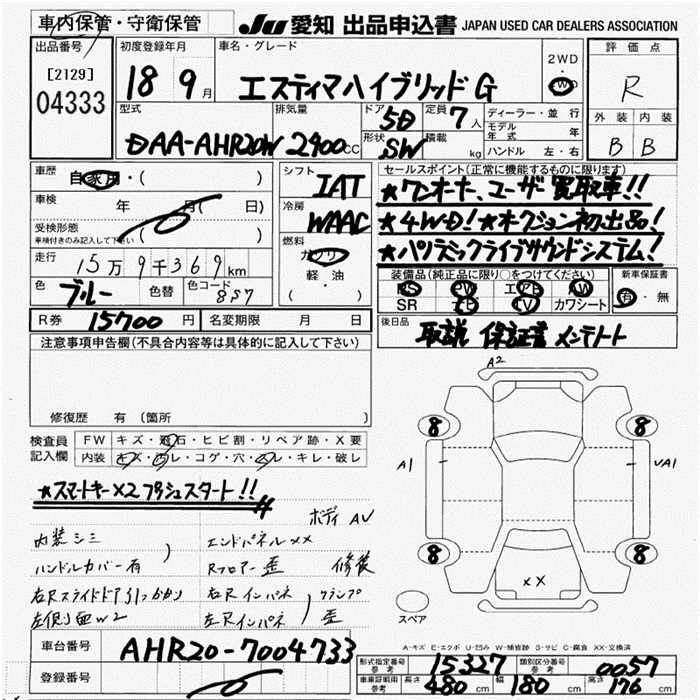 車内保管・守衛保管
JU 愛知 出品申込書 JAPAN USED CAR DEALERS ASSOCIATION
出品番号 初度登録年月 車名・グレード 評価点
[2129] 18 9月 エスティマハイブリッドG 2WD R
04333 4WD
型式 排気量 ドア 5D 定員 7人 ディーラー・並行 外装 内装
DAA-AHR20W 2400cc 形状 SW 積載 kg モデル年式 年 B B
ハンドル 左・右
車歴 自家用・( ) シフト IAT セールスポイント(正常に機能するものに限ります)
★ワンオーナー、ユーザー買取車!!
車検 年 月( 日) 冷房 WAAC ★4WD!★オークション初出品!
受検形態 ( )
車検付きのみ記入して下さい
燃料 ガソリン ★パノラミックライブサウンドシステム!
走行 15万9千369km 軽・油 装備品(純正品に限り○をつけてください) 新車保証書
( ・ ) PS PW エアB AW 有・無
色 ブルー 色替 色コード 8S7 SR ナビ TV カワシート
R券 15700円 名変期限 月 日 後日品 取説 保証書 メンテノート
注意事項申告欄(不具合内容等は具体的に記入して下さい)
A2
修復歴 有 (箇所
8 8
検査員記入欄 FW キズ・飛石・ヒビ割・リペア跡・X要
内装 キズ・汚レ・コゲ・穴・スレ・キレ・破レ
A1 UA1
★スマートキー×2プッシュスタート!!
ボディ AU
内装シミ エンドパネルXX
ハンドルカバー有 Rフロアー歪 修装
8 8
XX
右Rスライドドア引っかかり 右Rインパネ クランプ
左側面W2 左Rインパネ 歪
スペア
A-キズ E-エクボ U-凹み W-補修跡 S-サビ C-腐食 XX-交換済
車台番号 AHR20-7004733
形式指定番号 参考 15327 類別区分番号 参考 0057
登録番号
車庫証明用 参考 長さ 480cm 幅 180cm 高さ 176cm